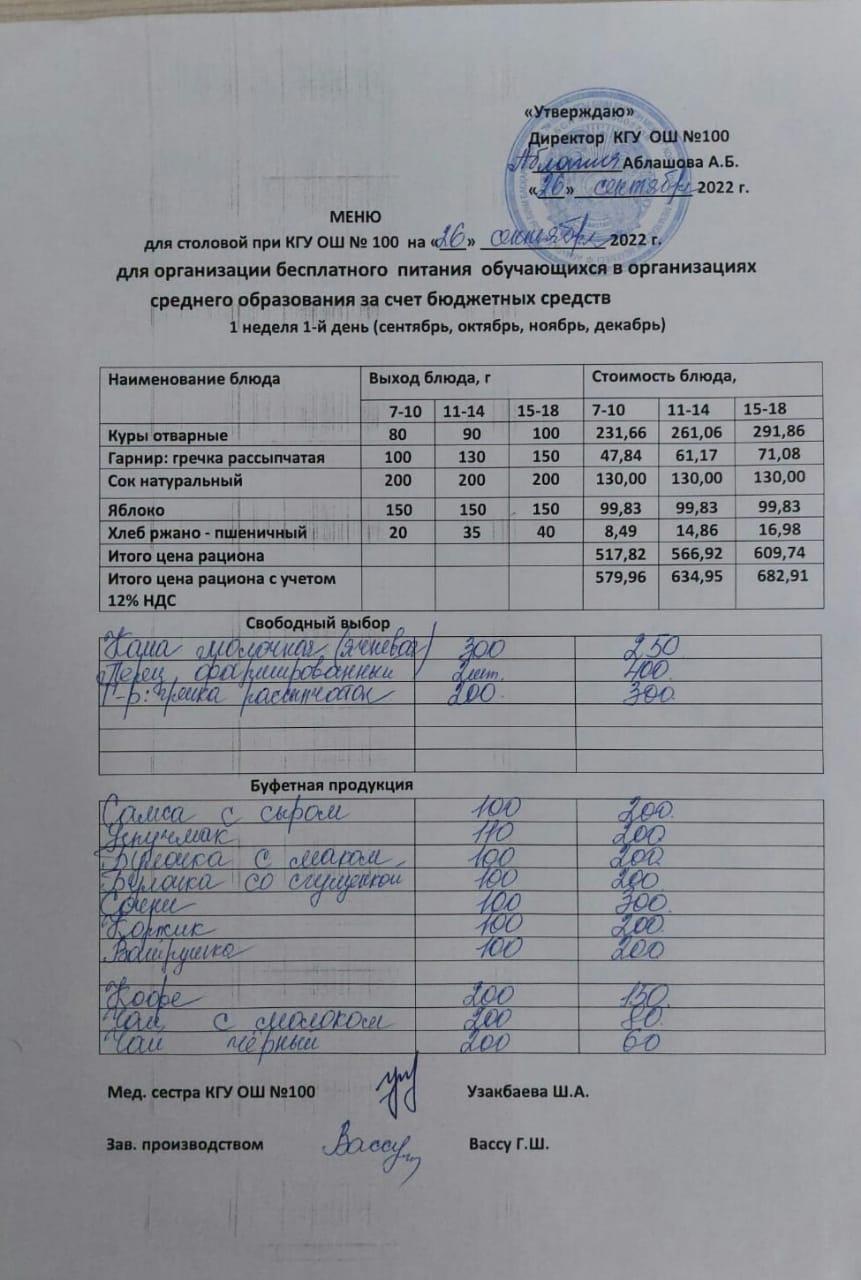 «Утверждаю»
Директор КГУ ОШ №100
Аблашова А.Б.
«26» сентябрь 2022 г.
МЕНЮ
для столовой при КГУ ОШ № 100 на «26» сентябрь 2022 г.
для организации бесплатного питания обучающихся в организациях
среднего образования за счет бюджетных средств
1 неделя 1-й день (сентябрь, октябрь, ноябрь, декабрь)
Наименование блюда Выход блюда, г Стоимость блюда,
7-10 11-14 15-18 7-10 11-14 15-18
Куры отварные 80 90 100 231,66 261,06 291,86
Гарнир: гречка рассыпчатая 100 130 150 47,84 61,17 71,08
Сок натуральный 200 200 200 130,00 130,00 130,00
Яблоко 150 150 150 99,83 99,83 99,83
Хлеб ржано - пшеничный 20 35 40 8,49 14,86 16,98
Итого цена рациона 517,82 566,92 609,74
Итого цена рациона с учетом
12% НДС 579,96 634,95 682,91
Свободный выбор
Каша молочная (ячневая) 300 250
Перец фаршированный 2шт. 400
Г-р: гречка рассыпчатая 200 300
Буфетная продукция
Самса с сыром 100 200
Учпучмак 110 200
Булочка с маком 100 200
Булочка со сгущенкой 100 200
Сочни 100 300
Коржик 100 200
Ватрушка 100 200
Кофе 200 150
Чай с молоком 200 80
Чай чёрный 200 60
Мед. сестра КГУ ОШ №100 Узакбаева Ш.А.
Зав. производством Вассу Вассу Г.Ш.